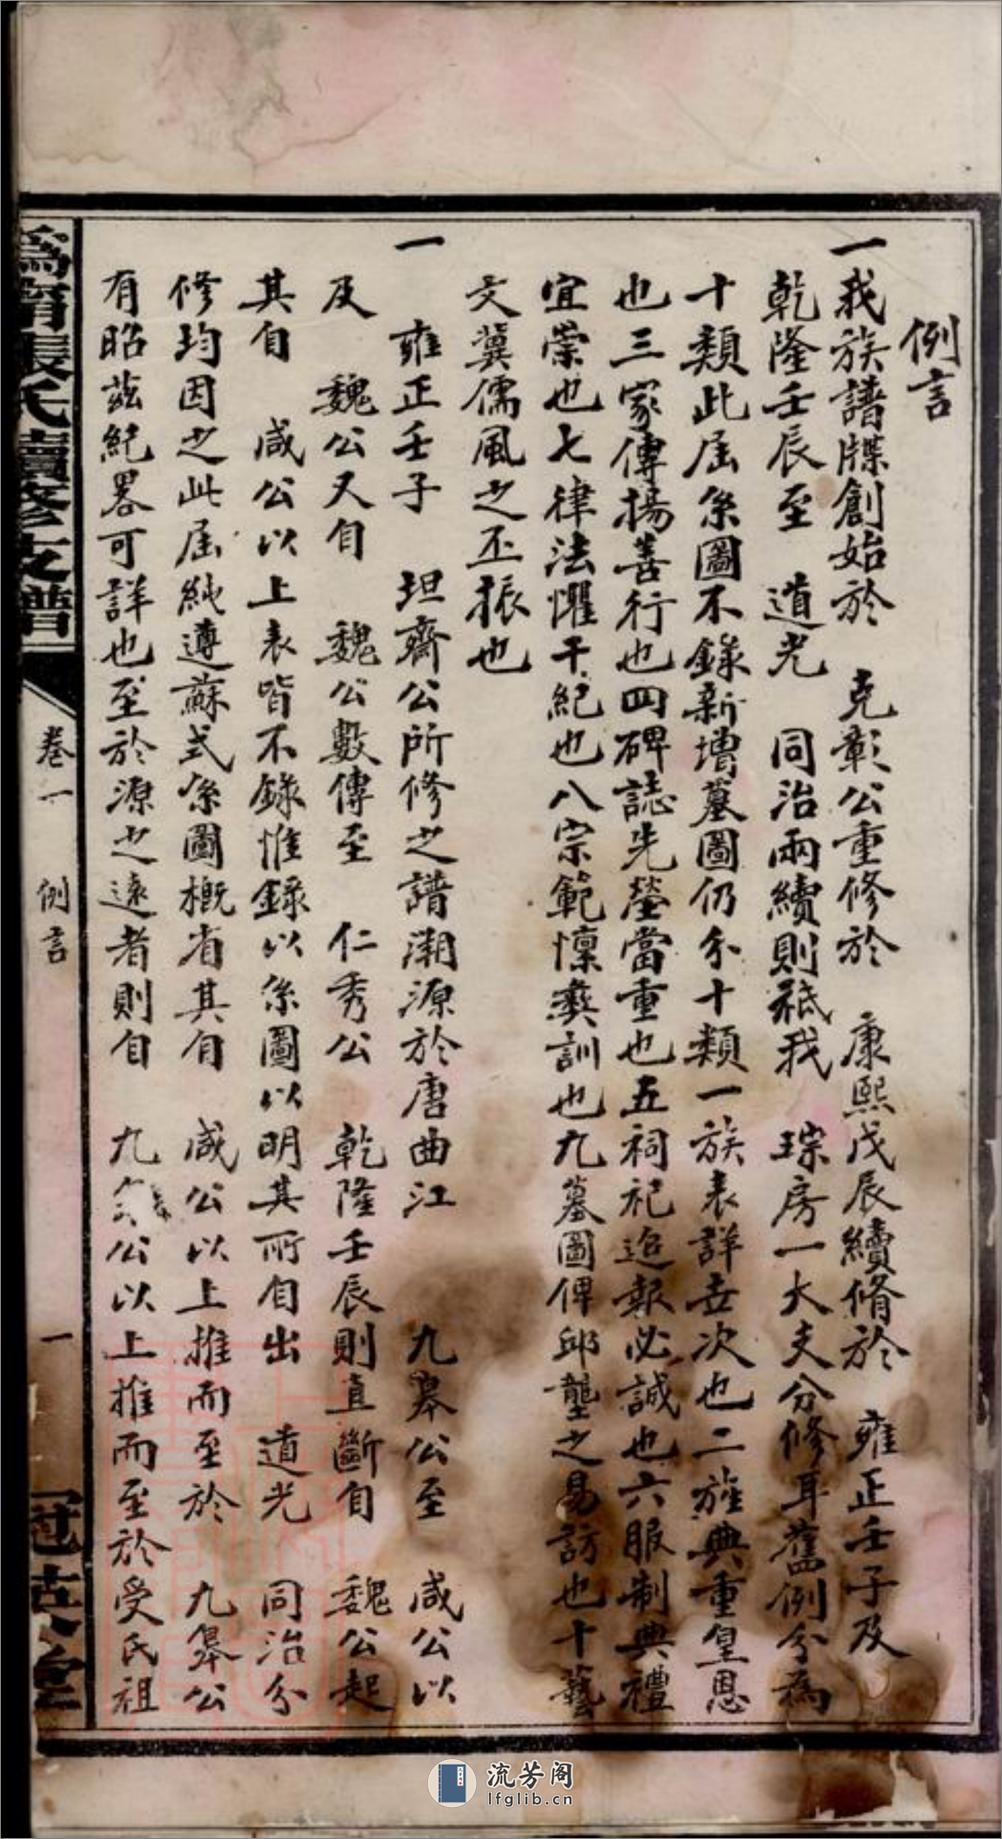 例言
一我族譜牒創始於 克彰公重修於 康熙戊辰續脩於 雍正壬子及
乾隆壬辰至 道光 同治兩續則祗我 琮房一大支分修耳舊例分為
十類此屆系圖不錄新增墓圖仍分十類一族表詳世次也二旌典重皇恩
也三家傳揚善行也四碑誌先塋當重也五祠祀追報必誠也六服制典禮
宜崇也七律法懼干紀也八宗範懍彝訓也九墓圖俾邱壟之易訪也十藝
文冀儒風之丕振也
一 雍正壬子 坦齋公所修之譜溯源於唐曲江 九皋公至 咸公以
及 魏公又自 魏公數傳至 仁秀公 乾隆壬辰則直斷自 魏公起
其自 咸公以上表皆不錄惟錄以系圖以明其所自出 道光 同治分
修均因之此屆純遵蘇式系圖概省其自 咸公以上推而至於 九皋公
有昭茲紀畧可詳也至於源之遠者則自 九公以上推而至於受氏祖
為甯張氏續修支譜
卷一 例言
一
冠英堂
流芳阁
lfglib.cn